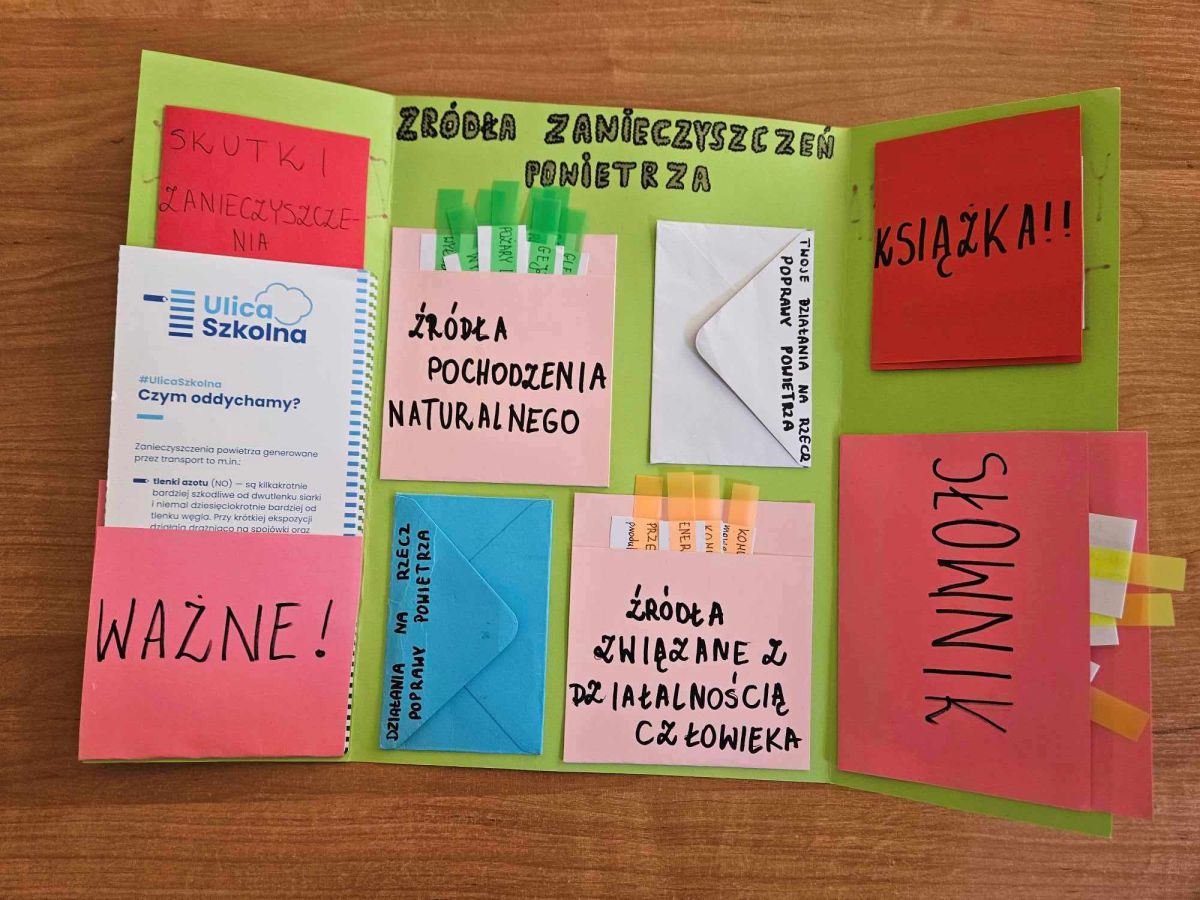 ŹRÓDŁA ZANIECZYSZCZEŃ
POWIETRZA
SKUTKI
ZANIECZYSZCZE-
NIA
Ulica
Szkolna
#UlicaSzkolna
Czym oddychamy?
Zanieczyszczenia powietrza generowane
przez transport to m.in.:
tlenki azotu (NO) — są kilkakrotnie
bardziej szkodliwe od dwutlenku siarki
i niemal dziesięciokrotnie bardziej od
tlenku węgla. Przy krótkiej ekspozycji
działają drażniąco na spojówki oraz
WAŻNE!
POŻARY
ŹRÓDŁA
POCHODZENIA
NATURALNEGO
TWOJE DZIAŁANIA NA RZECZ
POPRAWY POWIETRZA
DZIAŁANIA NA RZECZ
POPRAWY POWIETRZA
PRZE
ENER
ŹRÓDŁA
ZWIĄZANE Z
DZIAŁALNOŚCIĄ
CZŁOWIEKA
KSIĄŻKA!!
SŁOWNIK